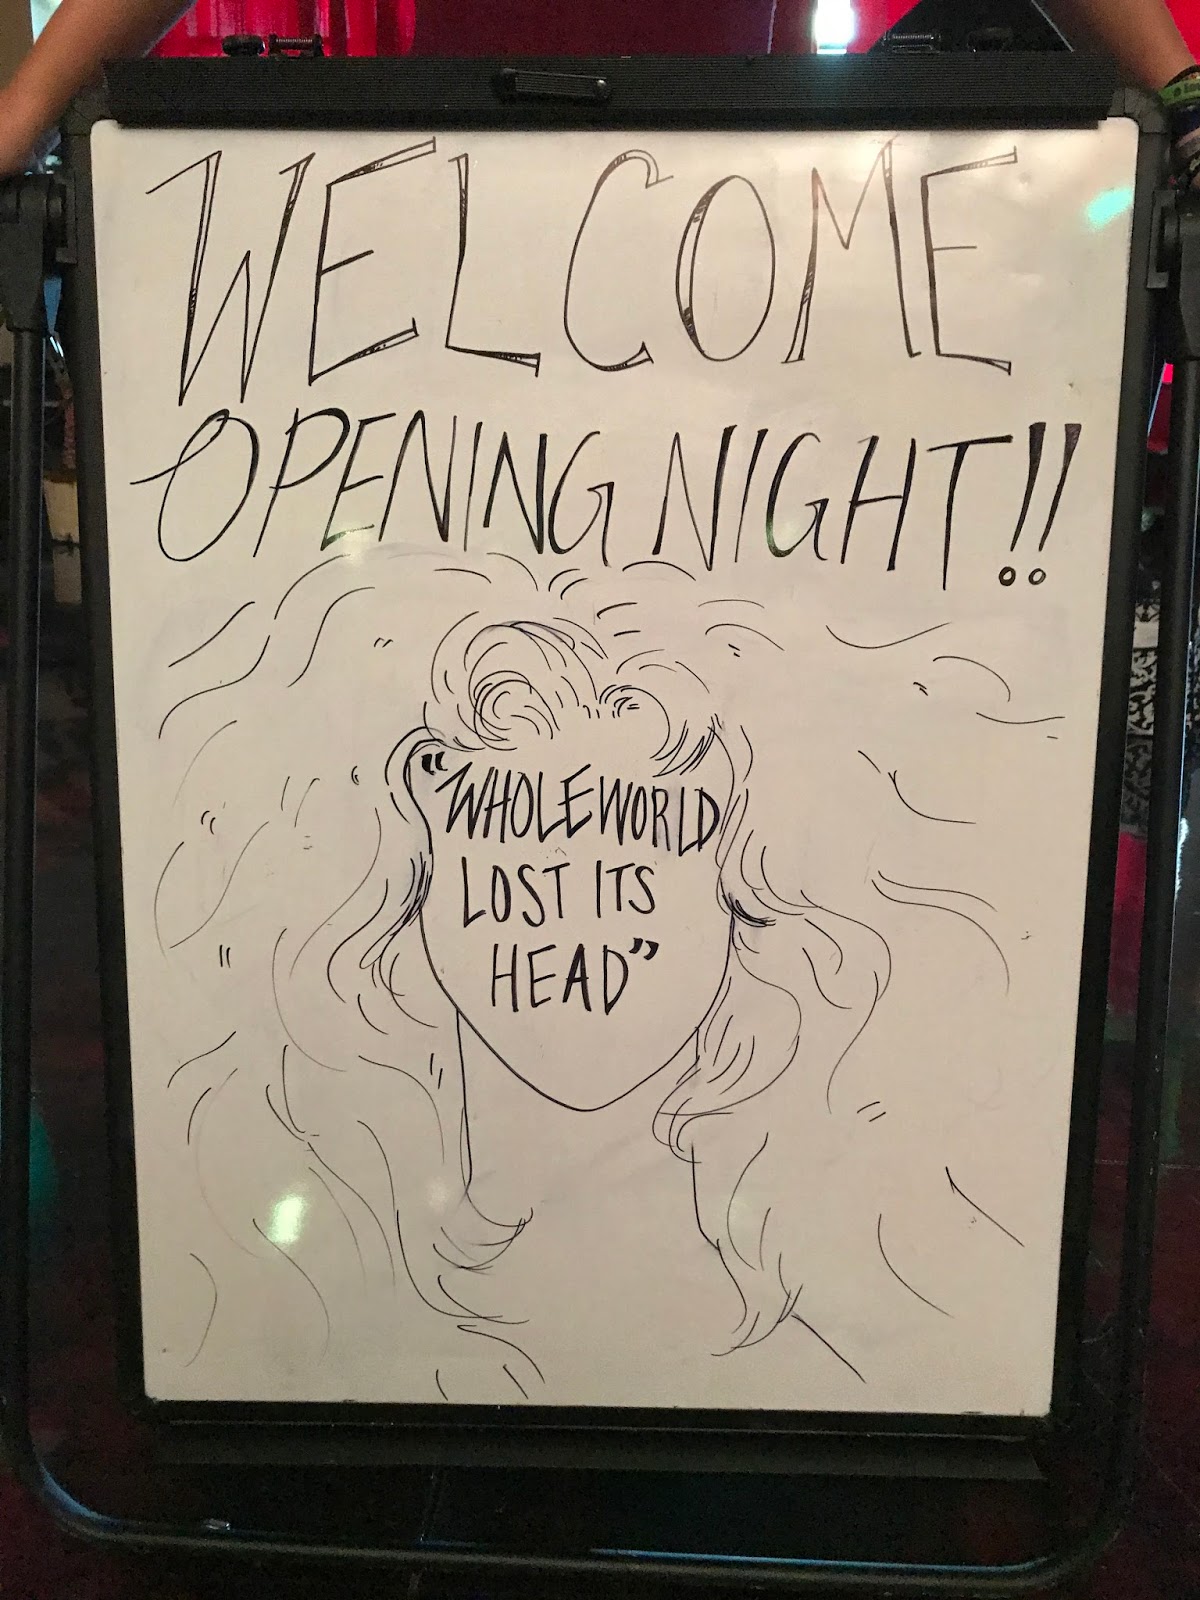 WELCOME
OPENING NIGHT!!
"WHOLE WORLD
LOST ITS
HEAD"